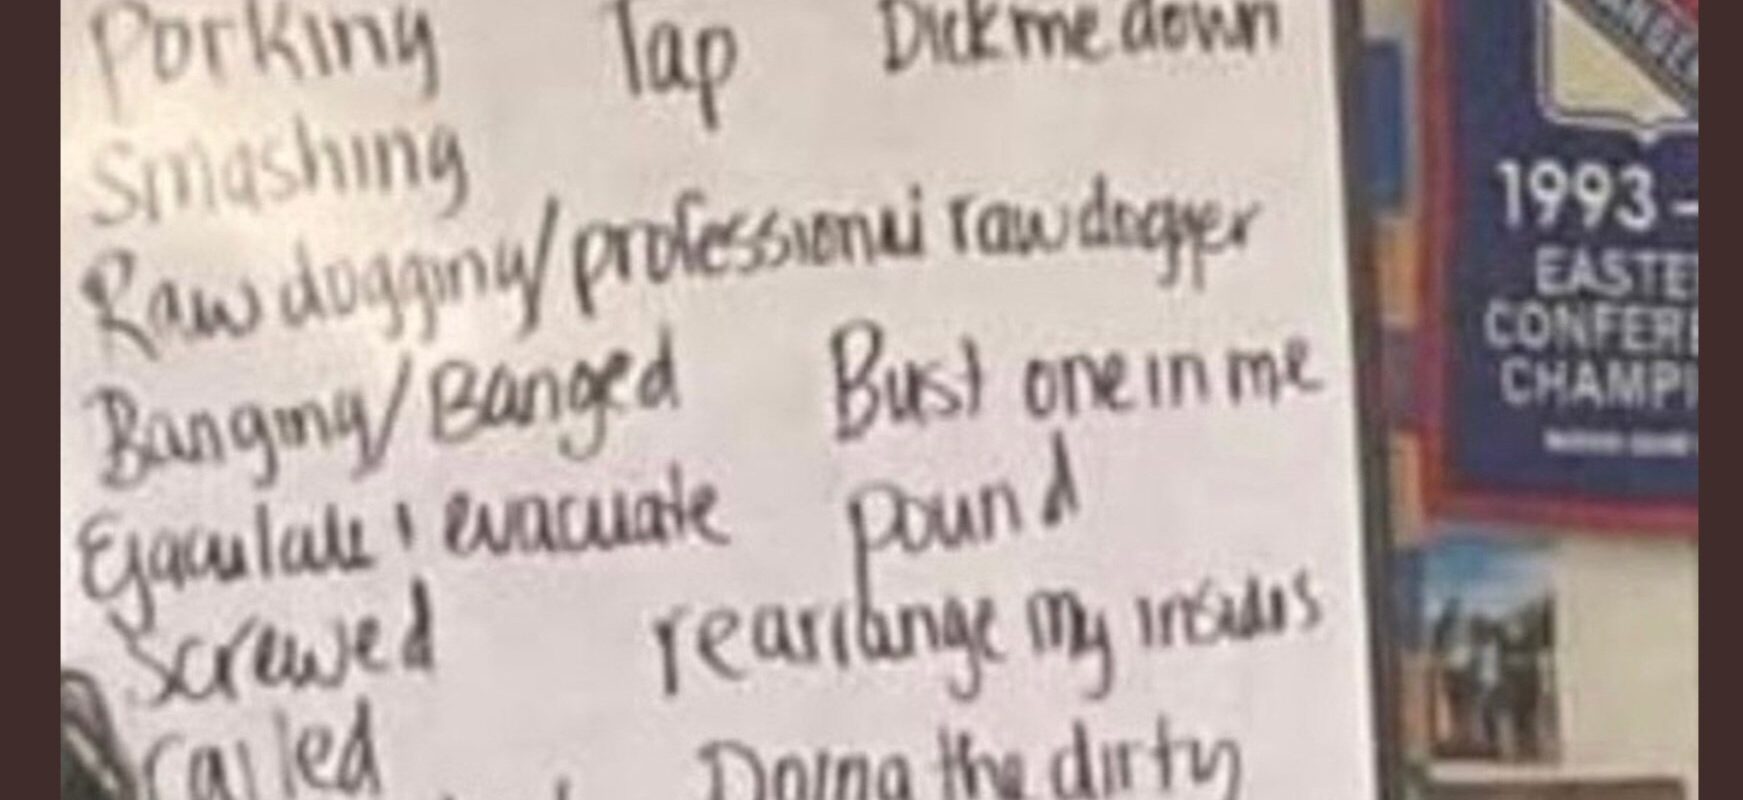 Porking Tap Dick me down
Smashing
Raw dogging/professional raw dogger
Banging/Banged Bust one in me
Ejaculate & evacuate pound
Screwed rearrange my insides
railed Doing the dirty
1993 -
EASTE
CONFER
CHAMPI